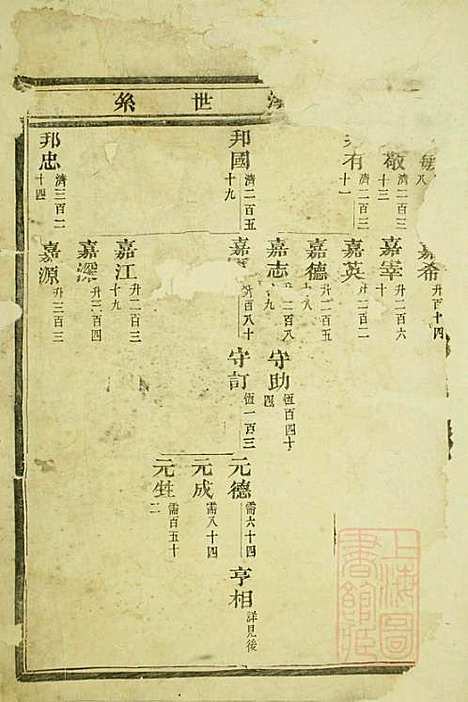 世系
敬 濟二百三十三
有 濟二百三十一
邦國 濟二百五十九
邦忠 濟三百二十四
嘉希 升百十四
嘉宰 升二百六十
嘉英 升二百二
嘉德 升二百五十八
嘉志 升二百八十九
嘉 升百八十
嘉江 升二百三十九
嘉深 升二百四
嘉源 升三百三
守助 恆百四十四
守訂 恆一百三
元德 需六十四
元成 需八十四
元甡 需百五十二
亨相 詳見後
上海圖書館藏